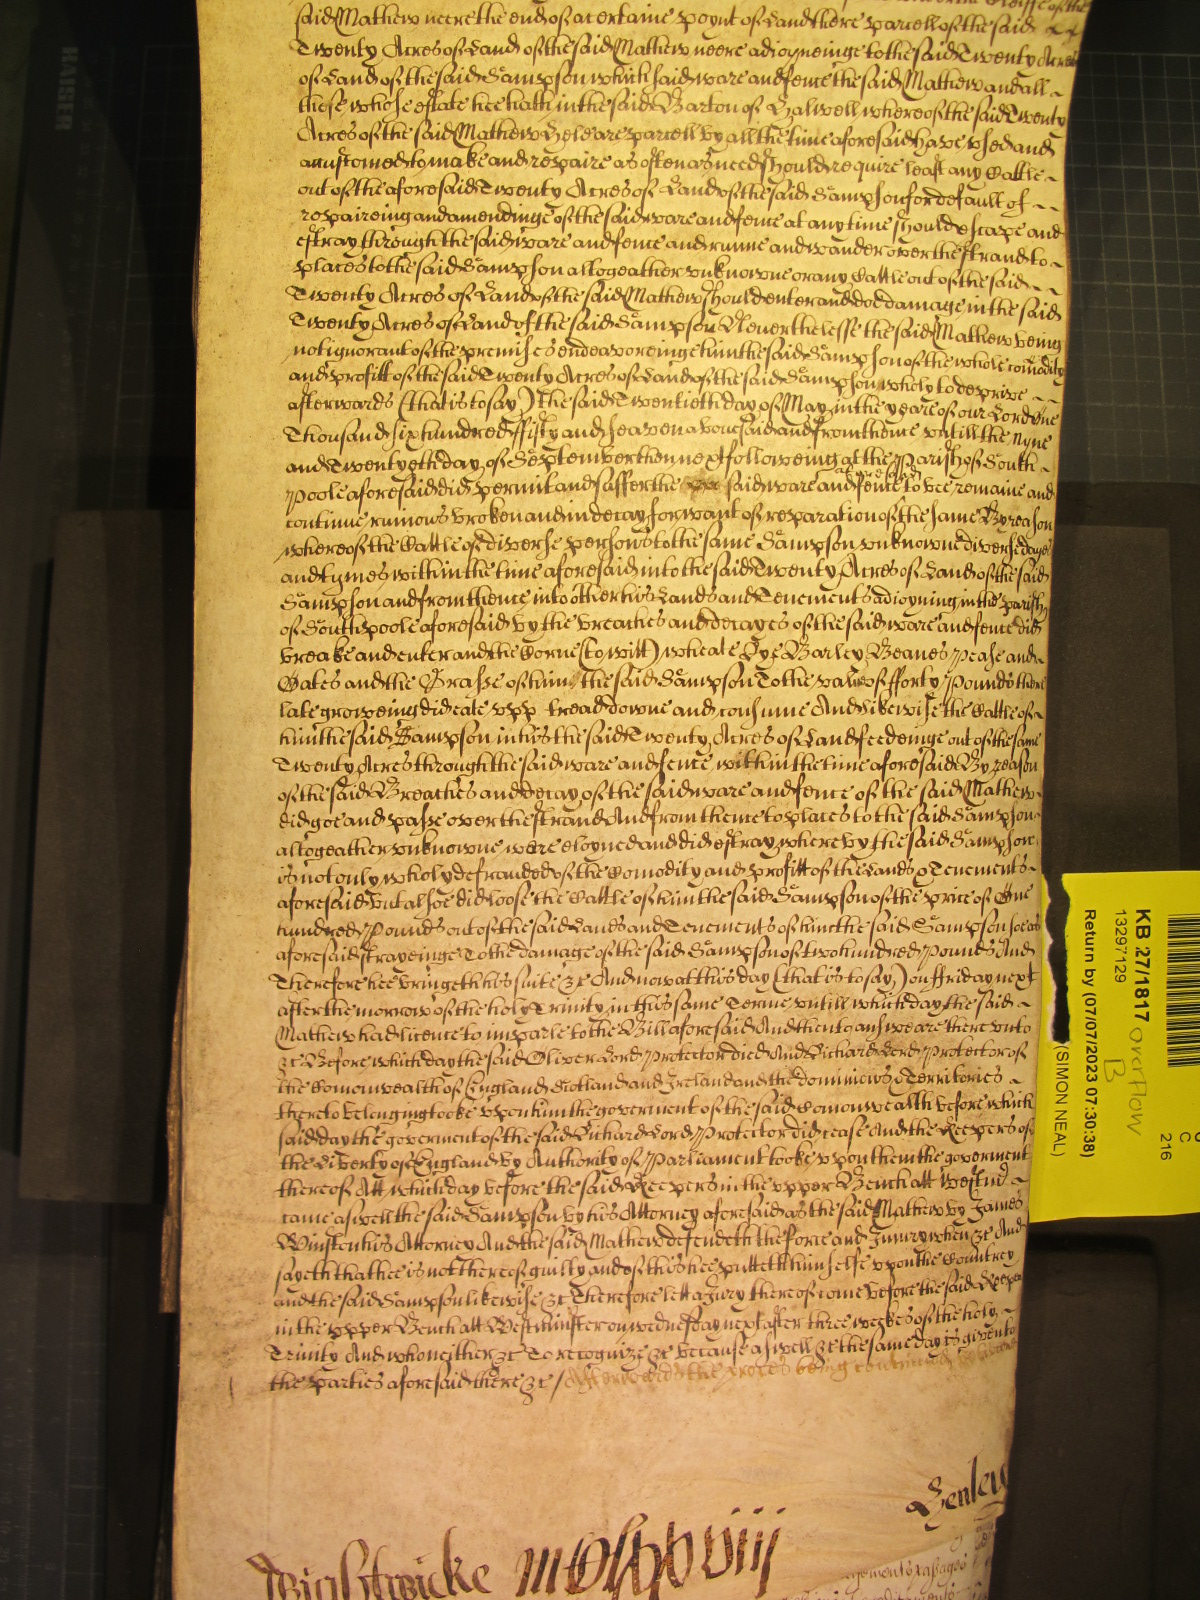 said Mathew neere the end of a certaine poynt of Land there parcell of the said
Twenty Acres of Land of the said Mathew neere adioyneinge to the said Twenty Acres
of Land of the said Sampson which said ware and fence the said Mathew and all
those whose estate hee hath in the said Barton of Halwell whereof the said Twenty
Acres of the said Mathew Hele are parcell by all the time aforesaid have vsed and
accustomed to make and repaire as often as need should require least any Cattle
out of the aforesaid Twenty Acres of Land of the said Sampson for default of
repaireing and amendinge of the said ware and fence at any time should escape and
estray through the said ware and fence and runne and wander over the strand to
places to the said Sampson altogeather vnknowne or any Cattle out of the said
Twenty Acres of Land of the said Mathew should enter and doe damage in the said
Twenty Acres of Land of the said Sampson Neverthelesse the said Mathew being
not ignorant of the premisses endeavoreinge him the said Sampson of the whole comodity
and profitt of the said Twenty Acres of Land of the said Sampson wholy to deprive
afterwards (that is to say) the said Twentieth day of May in the yeare of our Lord One
Thousand six hundred fifty and seaven abovesaid and from thence vntill the nyne
and Twentyeth day of September then next followeing at the Parish of South
poole aforesaid did permit and suffer the said ware and fence aforesaid to bee remaine and
continue ruinous broken and in decay for want of reparation of the same By reason
whereof the Cattle of diverse persons to the same Sampson vnknowne diverse dayes
and tymes within the time aforesaid into the said Twenty Acres of Land of the said
Sampson and from thence into other his Lands and Tenements adioyning in the parish
of Southpoole aforesaid by the breaches and decayes of the said ware and fence did
breake and enter and the Corne (to witt) wheate Rye Barley Beanes Pease and
Oates and the Grasse of him the said Sampson To the value of fforty Pounds there
late groweing did eate vpp tread downe and consume And likewise the Cattle of
him the said Sampson in his the said Twenty Acres of Land feedeinge out of the same
Twenty Acres through the said ware and fence within the time aforesaid By reason
of the said Breaches and decay of the said ware and fence of the said Mathew
did goe and passe over the strand And from thence to places to the said Sampson
altogeather vnknowne were eloyned and did estray whereby the said Sampson
is not only wholy defrauded of the Comodity and profitt of the Lands & Tenements
aforesaid but alsoe did loose the Cattle of him the said Sampson of the price of One
hundred Pounds out of the said Lands and Tenements of him the said Sampson soe as
aforesaid strayeinge To the damage of the said Sampson of two hundred Pounds And
Therefore hee bringeth his suite &c And now at this day (that is to say) on ffriday next
after the morrow of the holy Trinity in this same Terme vntill which day the said
Mathew had licence to imparle to the Bill aforesaid And then to answeare therevnto
&c Before which day the said Oliver Lord Protector died And Richard Lord Protector of
the Comonwealth of England Scotland and Ireland and the dominions & Territories
thereto belonging tooke vpon him the goverment of the said Comonwealth before which
said day the goverment of the said Richard Lord Protector did cease And the Keepers of
the Liberty of England by Authority of Parliament tooke vpon them the goverment
thereof Att which day before the said Keepers in the vpper Bench att Westmr
came aswell the said Sampson by his Attorney aforesaid as the said Mathew by James
Winston his Attorney And the said Mathew defendeth the force and Iniury when &c And
sayeth that hee is not thereof guilty and of this hee putteth himselfe vpon the Countrey
and the said Sampson likewise &c Therefore lett a Jury thereof come before the said Keepers
in the vpper Bench att Westminster on wednesday next after three weekes of the holy
Trinity And who neither &c To recognize &c because aswell &c the same day is given to
the parties aforesaid there &c / Afterwards the proces being continued
Henley
KB 27/1817 overflow
13297129 B
Return by (07/07/2023 07:30:38)
(SIMON NEAL)
C
216